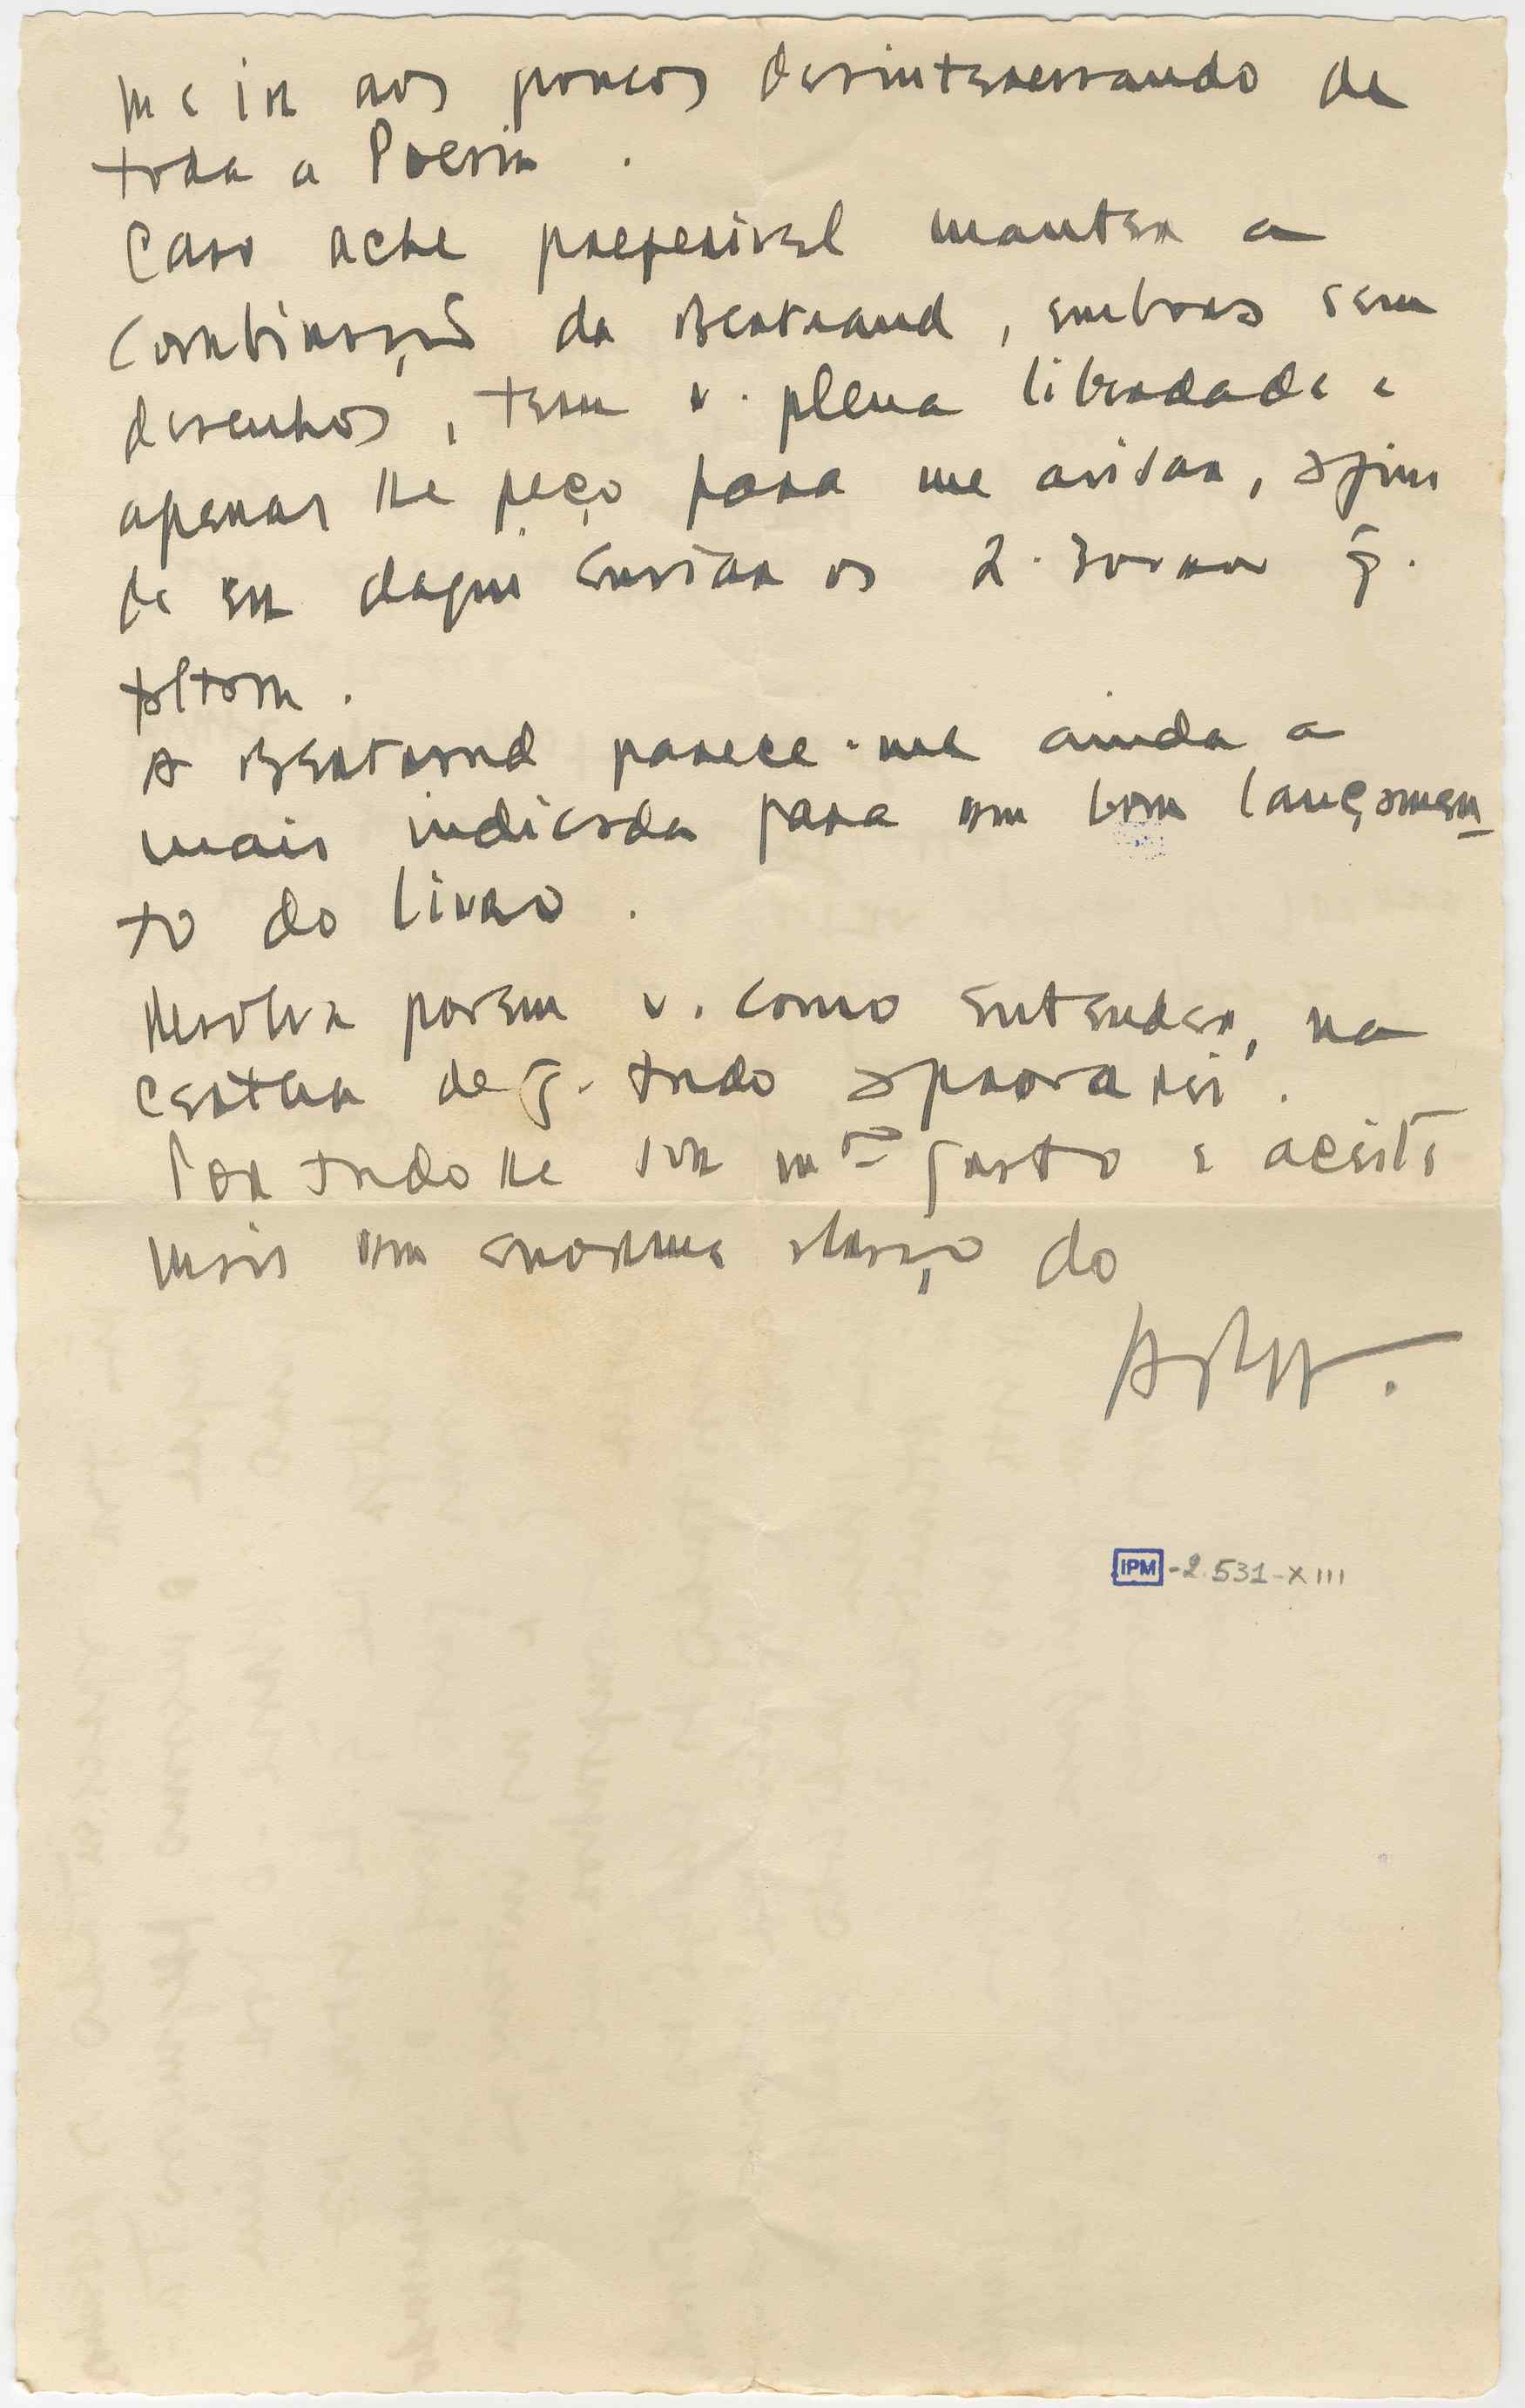 me ir aos poucos desinteressando de
toda a Poesia.
Caso ache preferivel manter a
combinação da Bertrand, embora sem
desenhos, tem v. plena liberdade e
apenas lhe peço para me avisar, afim
de eu daqui enviar os 2.
faltam.
A Bertrand parece-me ainda a
mais indicada para um bom lançamen-
to do livro.
Resolva porem v. como entender, na
certeza de q. tudo aprovarei.
Por tudo lhe sou mto grato e aceite
mais um enorme abraço do
IPM-2.531-XIII